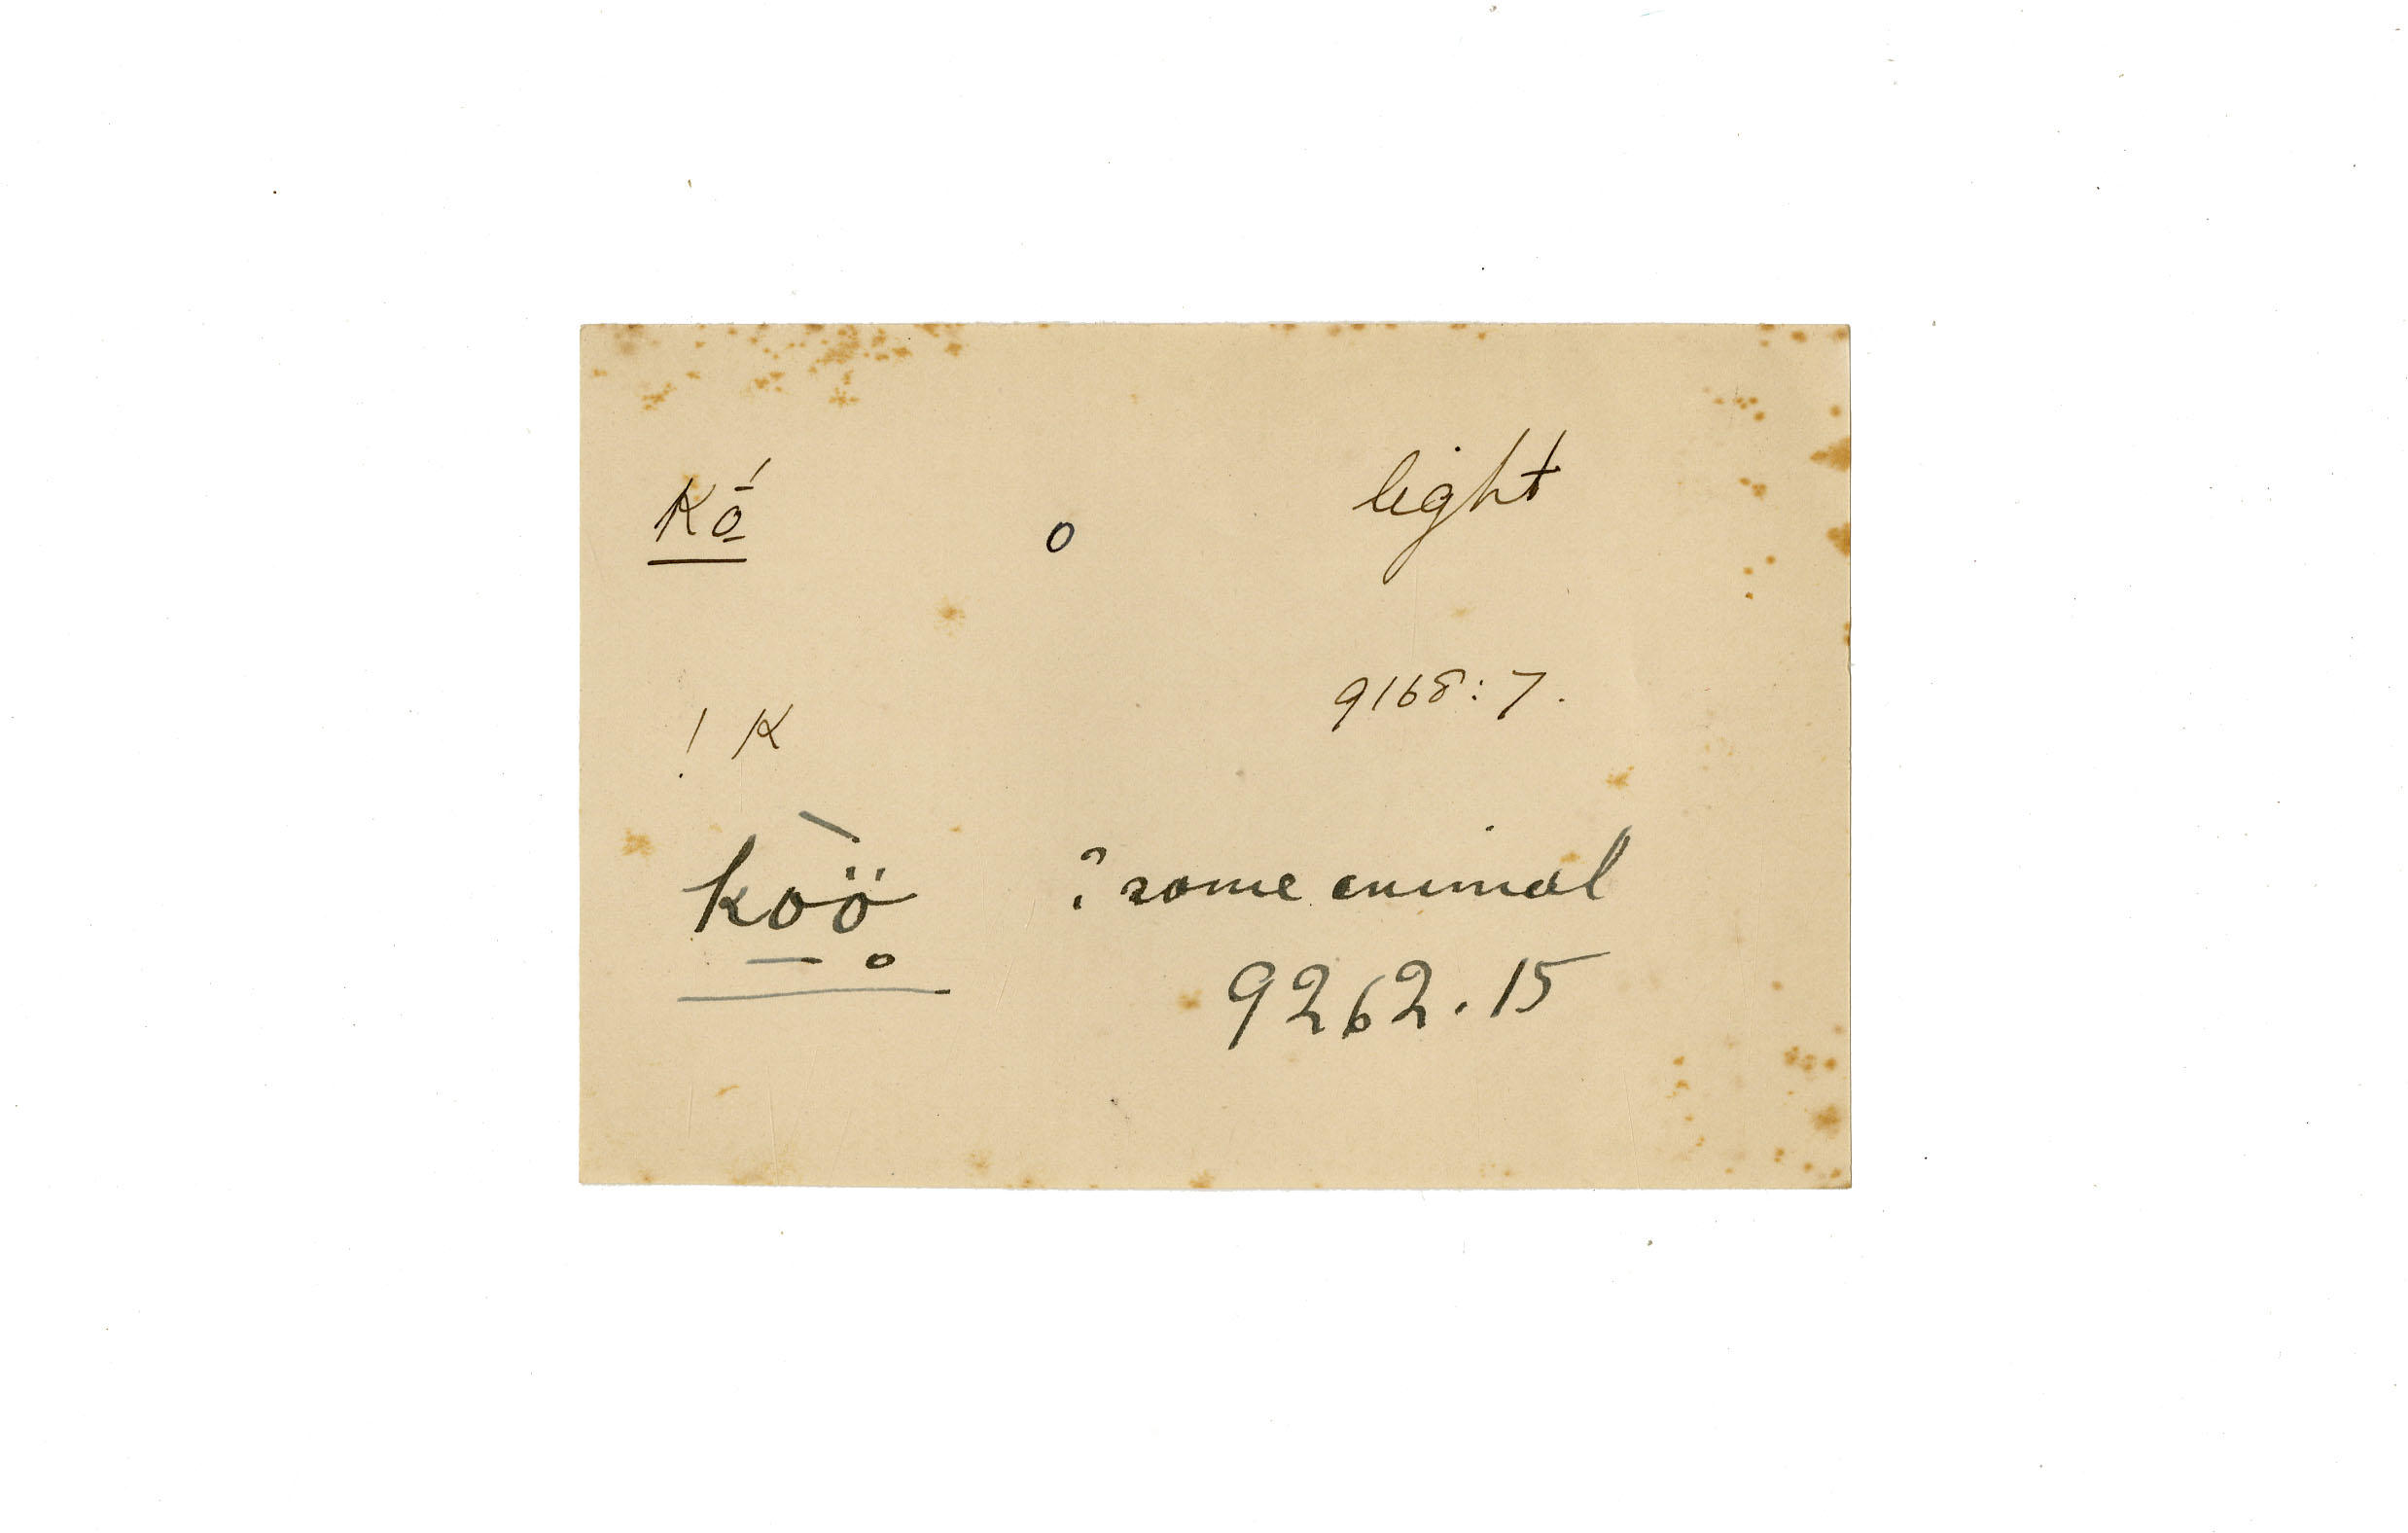 Kṓ̱ o light
! K 9168:7.
kò̱ö̥ ? some animal
9262.15